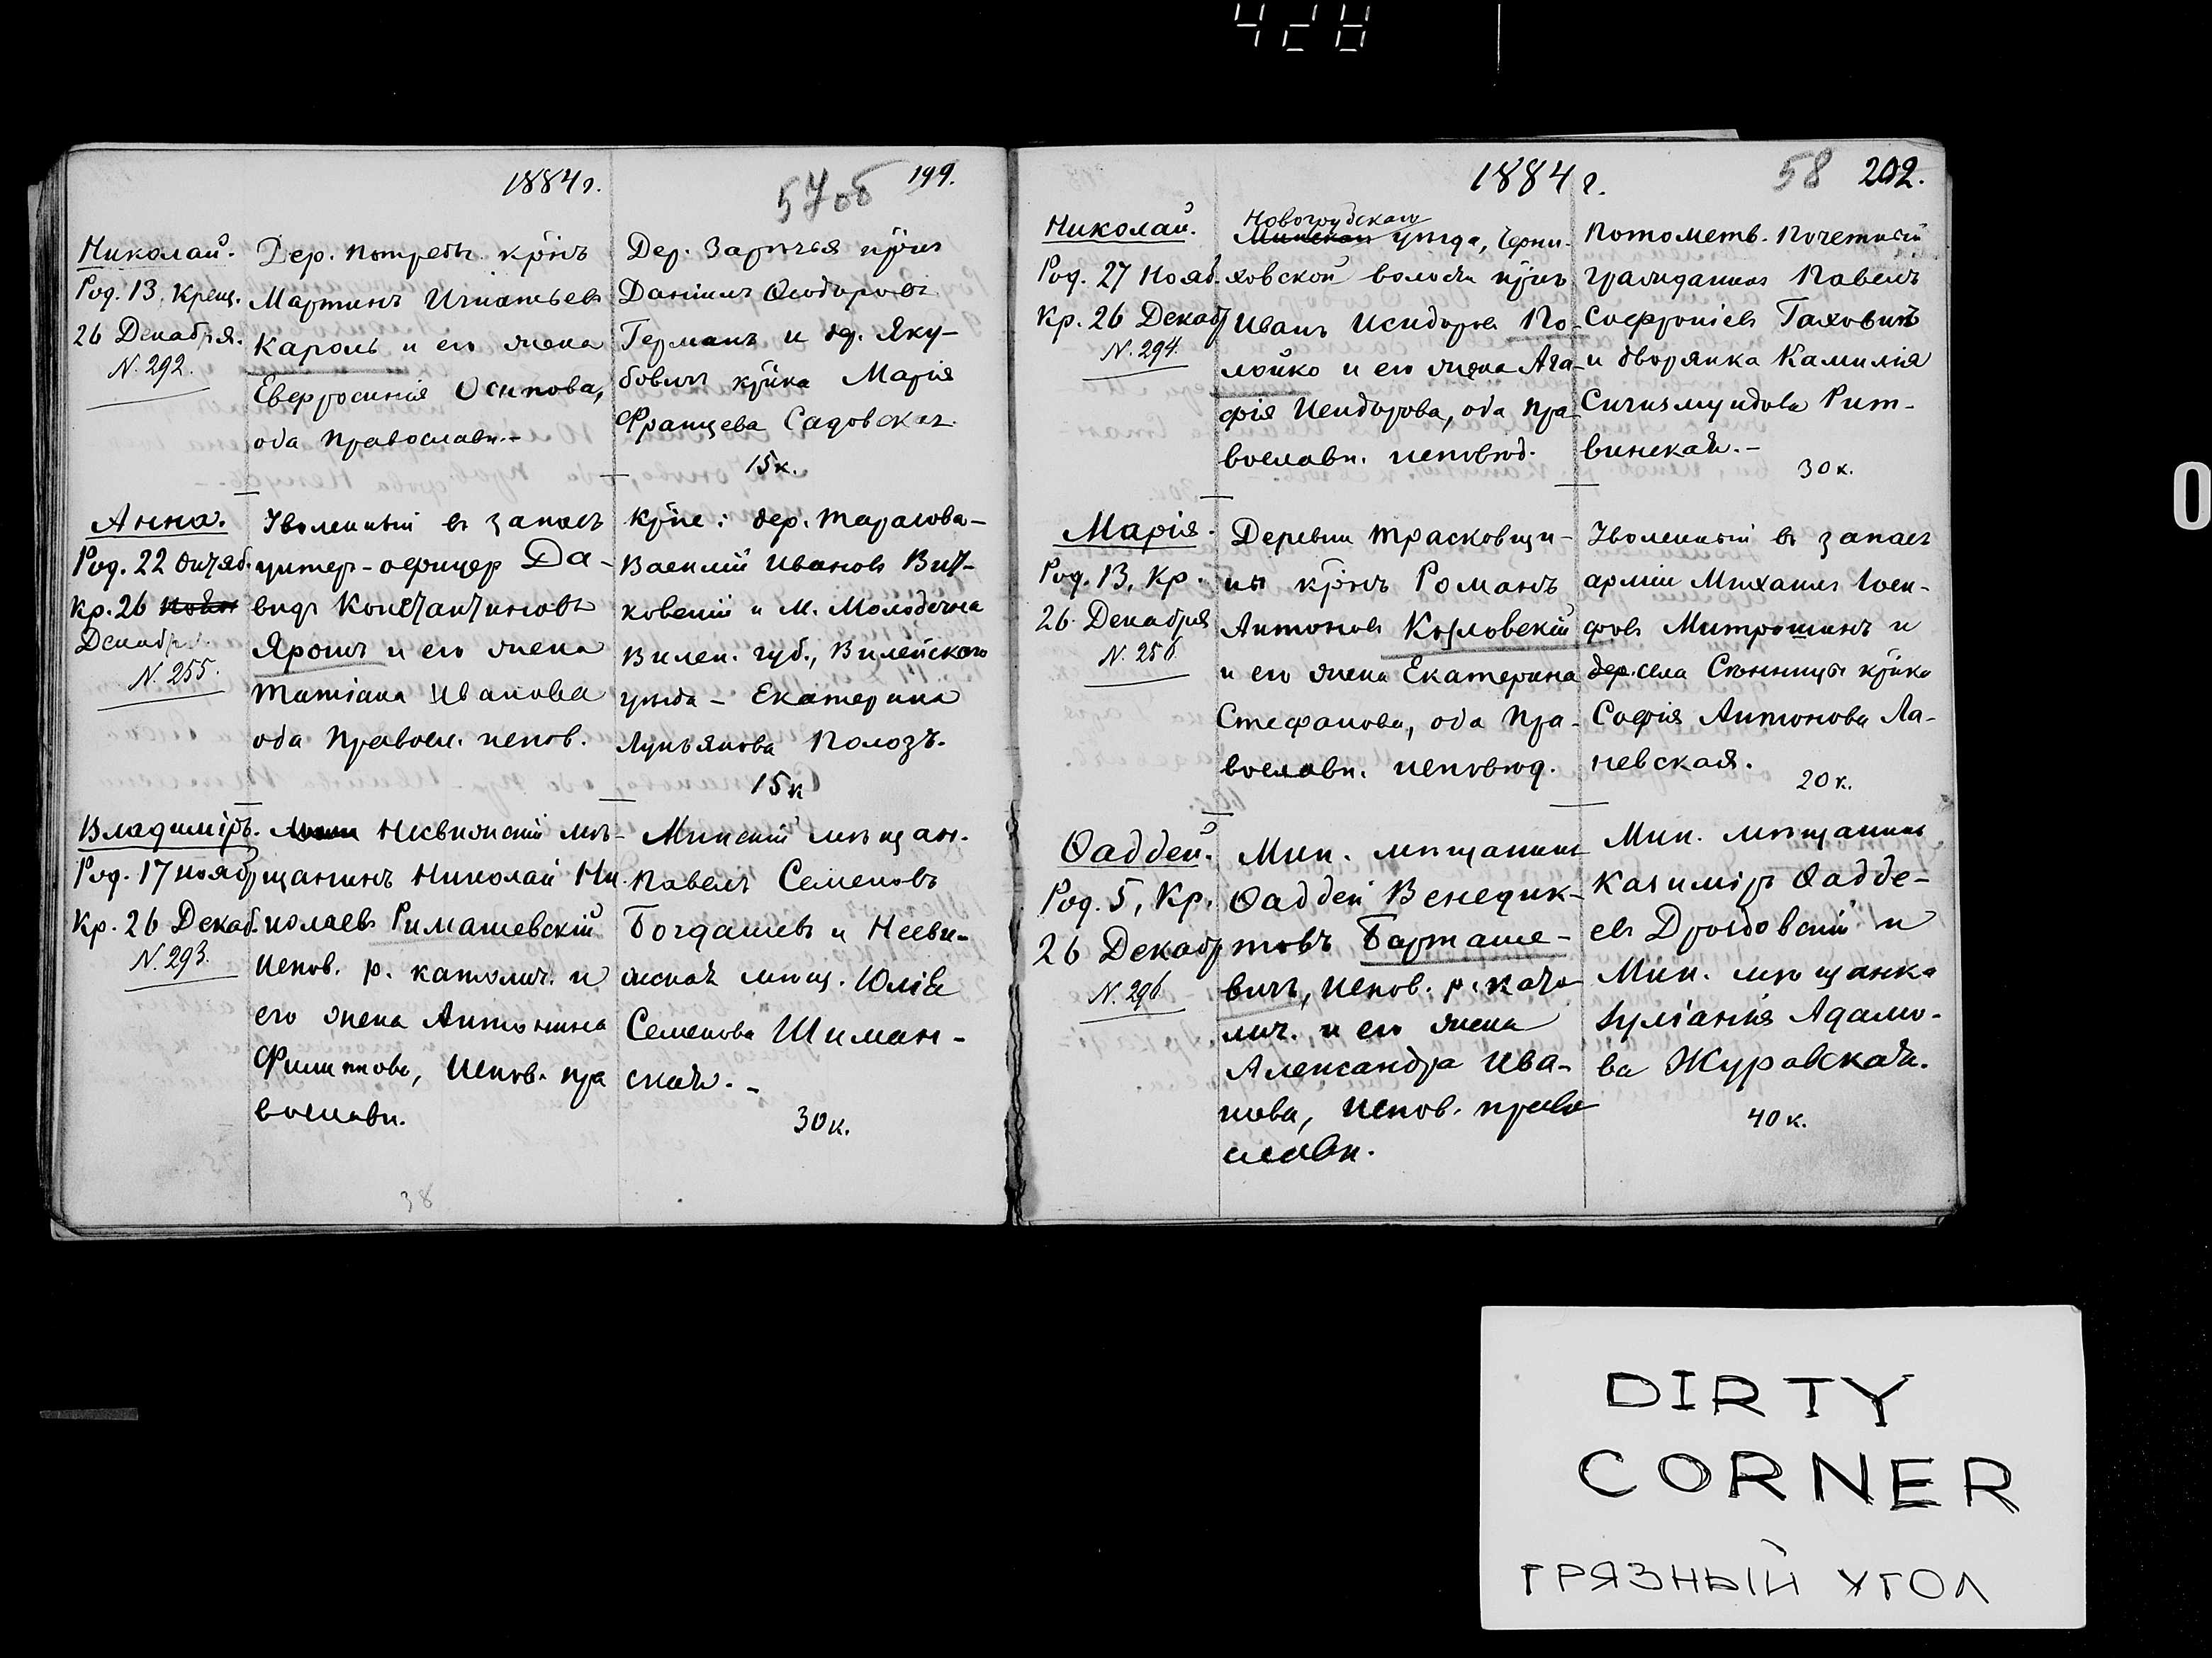 428
1884 г.
57 об
199.
Николай.
Род. 13, Крещ.
26 Декабря.
N. 292.
Дер. Потребы кр͠нъ
Мартинъ Игнатьевъ
Кароль и его жена
Евфросинія Осипова,
оба православн.-
Дер. Зарѣчья кр͠нъ
Даніилъ Ѳеодоровъ
Германъ и др. Яку-
бовичъ кр͠нка Марія
Францева Садовская
15 к.
Анна.
Род. 22 Октяб.
Кр. 26
Декабря.
N. 255.
Уволенный въ запасъ
унтер-офицер Да-
видъ Константиновъ
Ярошъ и его жена
Татіана Иванова
оба правосл. испов.
Кр͠не: дер. Тарасова-
Василій Ивановъ Вит-
ковскій и М. Молодечна
Вилен. губ., Вилейского
уѣзда - Екатерина
Лукьянова Полозъ.
15 к
Владиміръ.
Род. 17 нояб
Кр. 26 Декаб.
N. 293.
Несвижскій мѣ-
щанинъ Николай Ни-
колаевъ Римашевскій
испов. р. католич. и
его жена Антонина
Филиппова, испов. пра
вославн.
Минскій мѣщан.
Павелъ Семеновъ
Богдашевъ и Несви-
жская мѣщ. Юлія
Семенова Шиман-
ская. -
30 к.
38
1884 г.
58
202.
Николай.
Род. 27 Нояб.
Кр. 26 Декаб
N. 294.
Новогрудскаго
Минскаго уѣзда, Черни-
ховской волости кр͠нъ
Иванъ Исидоровъ По-
лойко и его жена Ага-
фія Исидорова, оба пра
вославн. исповѣд.
Потомств. почетный
гражданинъ Павелъ
Софроніевъ Гаховичъ
и дворянка Камилія
Сигизмундова Рит-
винская.-
30 к.
Марія.
Род. 13, Кр.
26 Декабря
N. 256
Деревни Трасковщи-
ны кр͠нъ Романъ
Антоновъ Козловскій
и его жена Екатерина
Стефанова, оба пра-
вославн. исповѣд.
Уволенный въ запасъ
арміи Михаилъ Іоси-
фовъ Митрошинъ и
дер. села Сѣнницы кр͠нка
Софія Антонова Ла-
невская.
20 к.
Ѳаддей.
Род. 5, Кр.
26 Декабр
N. 296
Мин. мѣщанинъ
Ѳаддей Венедик-
товъ Барташе-
вичъ, испов. р. като
лич. и его жена
Александра Ива-
нова, испов. право
славн.
Мин. мѣщанинъ
Казиміръ Ѳадде-
евъ Дроздовскій и
Мин. мѣщанка
Іуліанія Адамо-
ва Журавская.
40 к.
0
DIRTY
CORNER
ГРЯЗНЫЙ УГОЛ